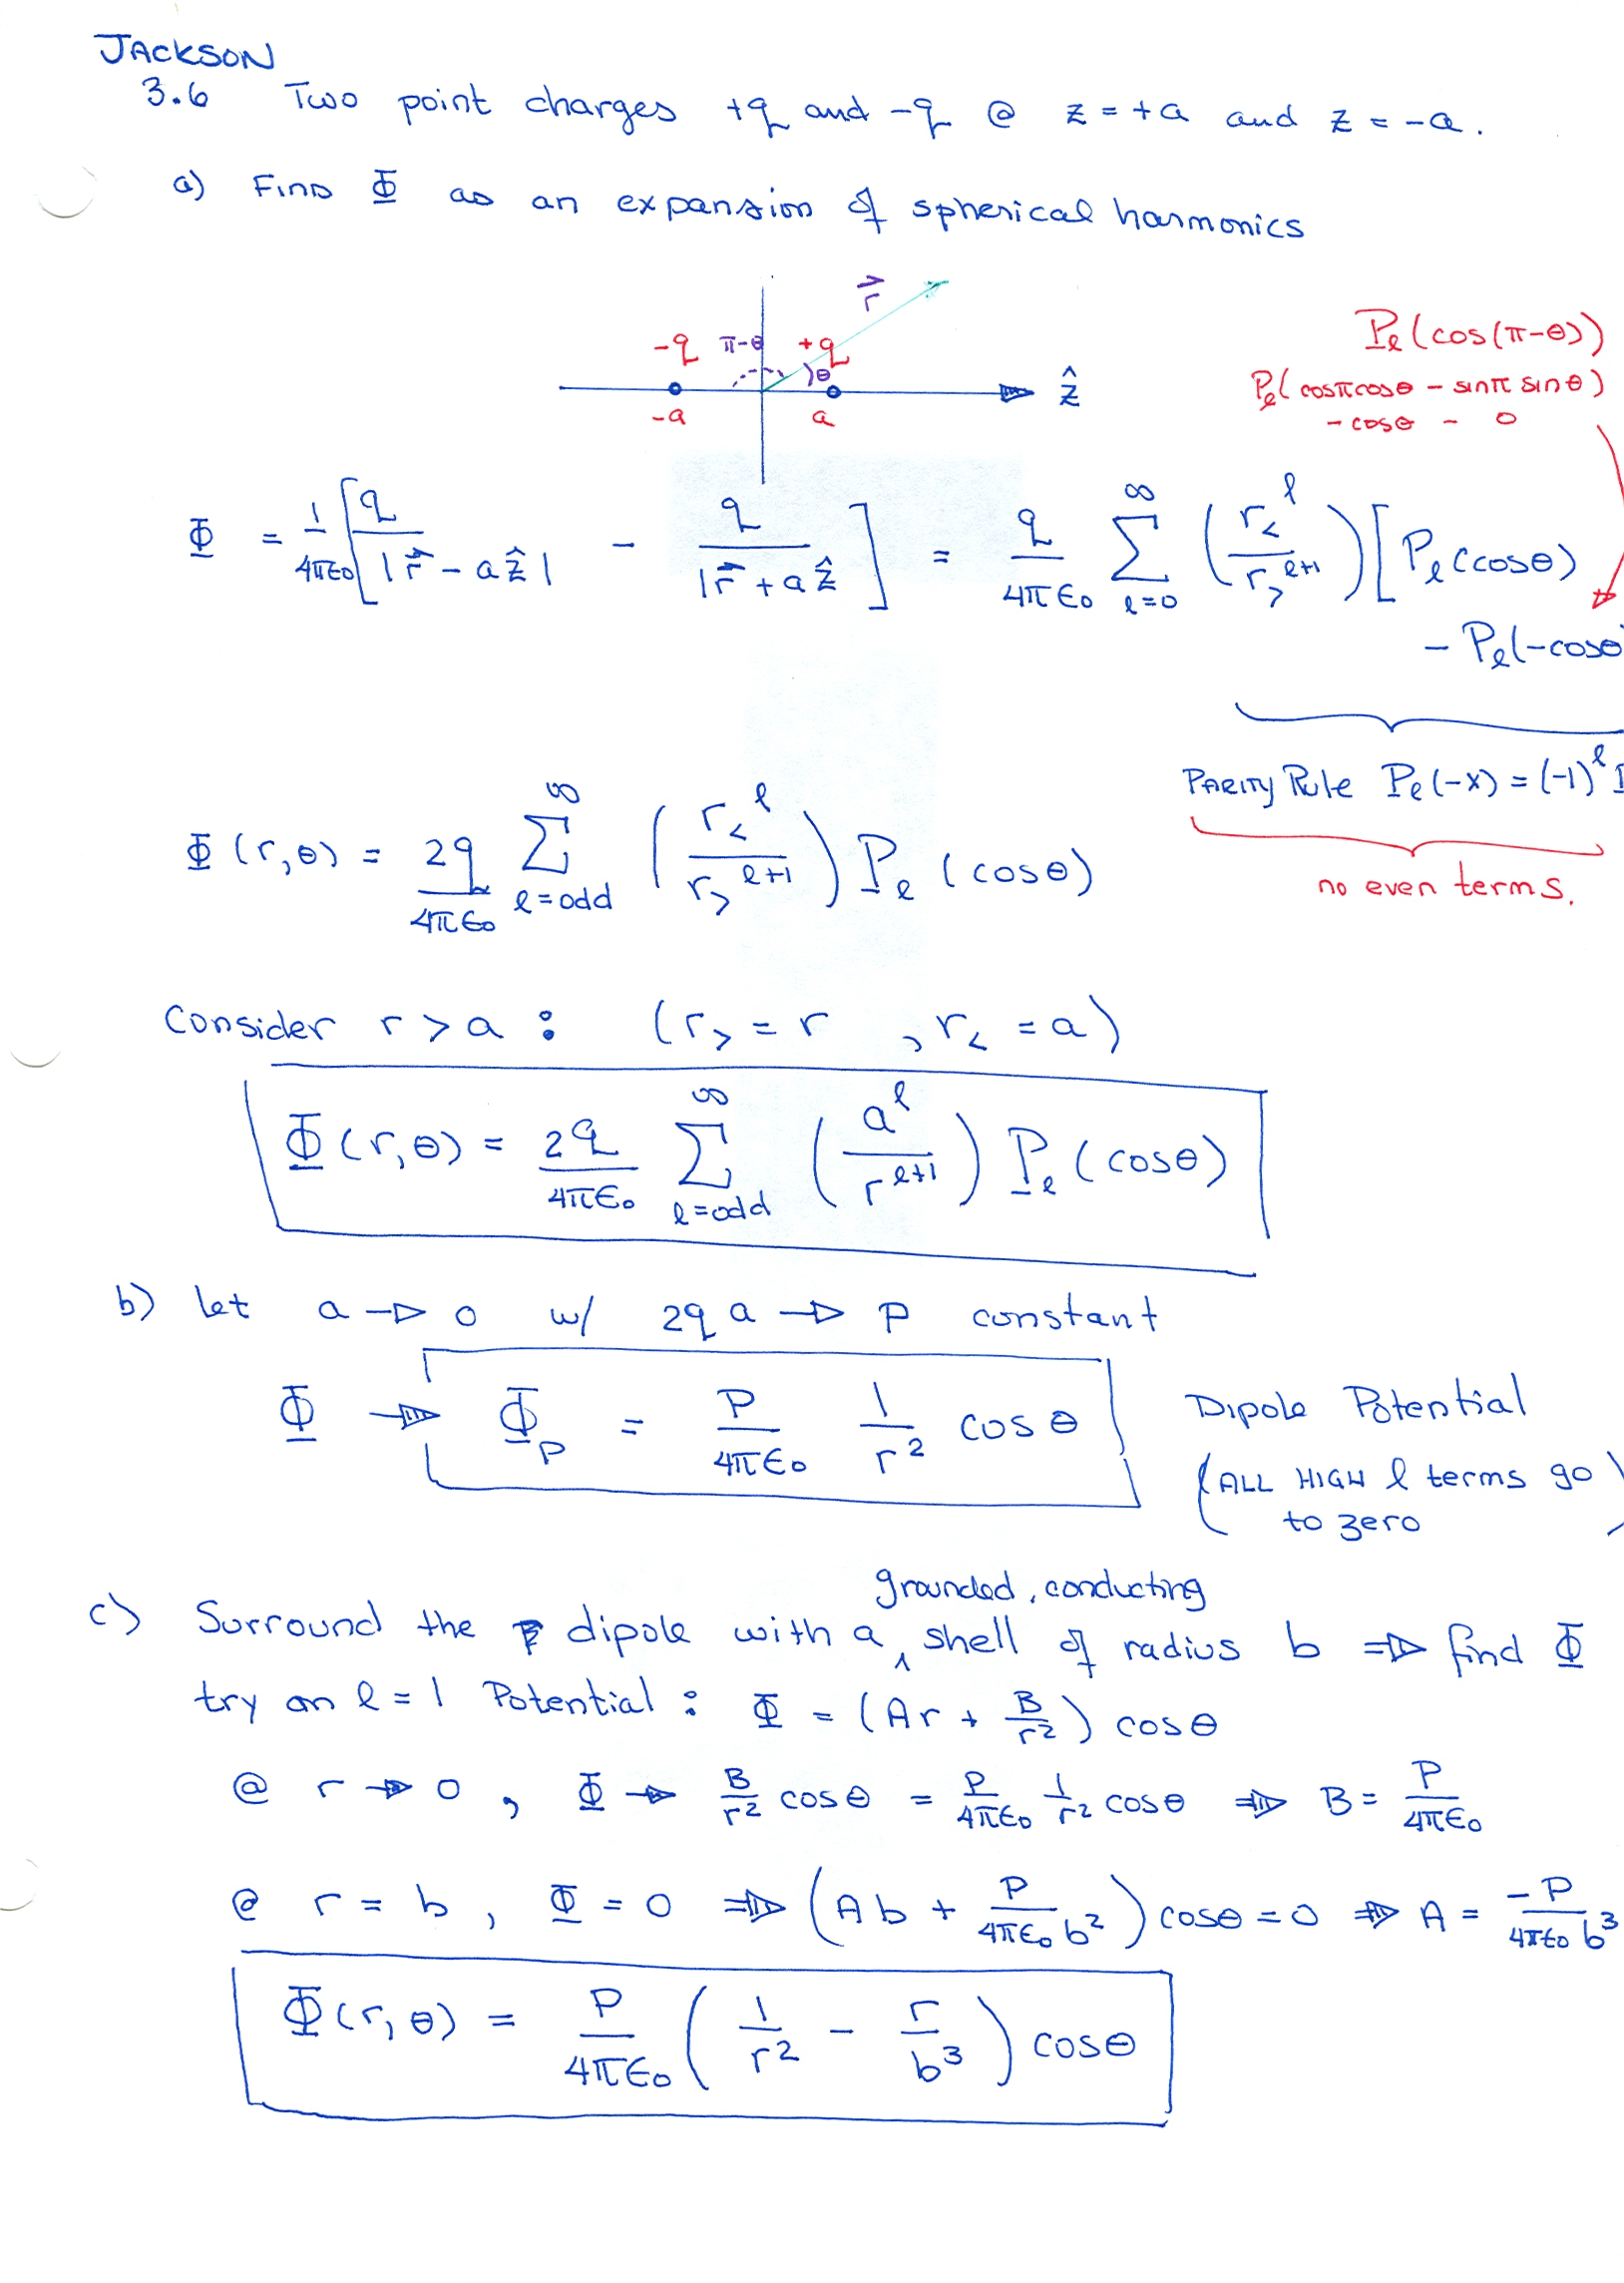 JACKSON
3.6 Two point charges +q and -q @ z = +a and z = -a.
a) Find Φ as an expansion of spherical harmonics
r⃗
-q π-θ +q )θ ẑ
-a a
Pℓ(cos(π-θ))
Pℓ(cosπcosθ - sinπ sinθ)
-cosθ - 0
Φ = 1/4πε₀ [ q/|r⃗ - aẑ| - q/|r⃗ + aẑ| ] = q/4πε₀ ∑_{ℓ=0}^{∞} (r<^ℓ / r>^{ℓ+1}) [Pℓ(cosθ)
- Pℓ(-cosθ
Parity Rule Pℓ(-x) = (-1)^ℓ
no even terms.
Φ(r,θ) = 2q/4πε₀ ∑_{ℓ=odd}^{∞} (r<^ℓ / r>^{ℓ+1}) Pℓ(cosθ)
Consider r > a : (r> = r , r< = a)
Φ(r,θ) = 2q/4πε₀ ∑_{ℓ=odd}^{∞} (a^ℓ / r^{ℓ+1}) Pℓ(cosθ)
b) let a → 0 w/ 2qa → p constant
Φ → Φ_p = p/4πε₀ 1/r² cosθ
Dipole Potential
(ALL HIGH ℓ terms go
to zero)
c) Surround the dipole with a ^ grounded, conducting shell of radius b ⇒ find Φ
try an ℓ = 1 Potential : Φ = (Ar + B/r²) cosθ
@ r → 0 , Φ → B/r² cosθ = p/4πε₀ 1/r² cosθ ⇒ B = p/4πε₀
@ r = b , Φ = 0 ⇒ (Ab + p/4πε₀b²) cosθ = 0 ⇒ A = -p/4πε₀b³
Φ(r,θ) = p/4πε₀ (1/r² - r/b³) cosθ